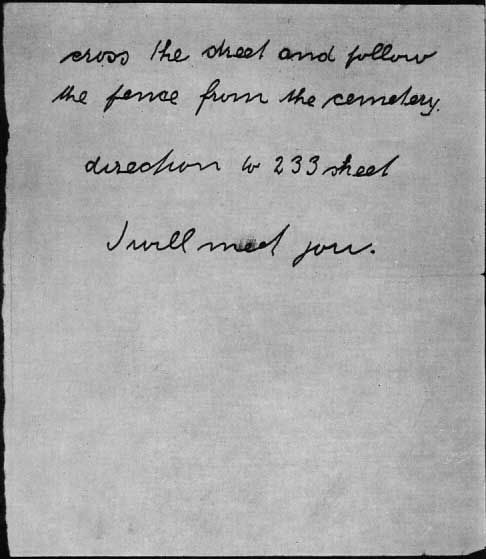 cross the street and follow
the fence from the cemetery.
direction to 233 street
I will meet you.